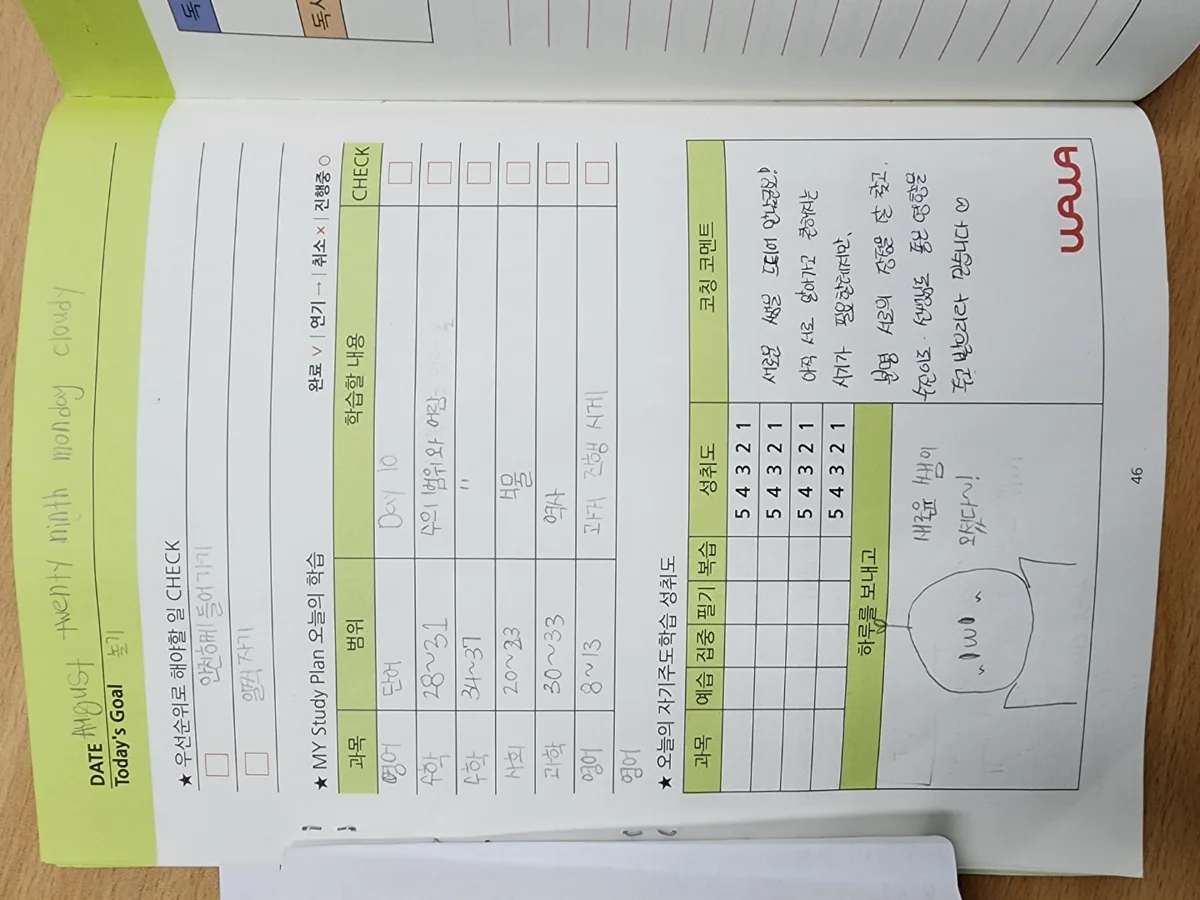 DATE August twenty ninth monday cloudy
Today's Goal 놀기
★ 우선순위로 해야할 일 CHECK
안전하게 들어가기
일찍 자기
★ MY Study Plan 오늘의 학습
완료 V | 연기 → | 취소 × | 진행중 ○
과목 범위 학습할 내용 CHECK
영어 단어 Day 10
수학 28~31 수의 범위와 어림
수학 34~37 "
사회 20~23
과학 30~33 역사
영어 8~13 과거 진행 시제
영어
★ 오늘의 자기주도학습 성취도
과목 예습 집중 필기 복습 성취도 코칭 코멘트
5 4 3 2 1
5 4 3 2 1
5 4 3 2 1
5 4 3 2 1
새로운 쌤은
아직 서로 알아가고 친해지는
시기가 필요할테지만,
분명 서로의 장점을 잘 찾고,
수진이도 선생님도 좋은 영향을
주고 받으리라 믿습니다 ♡
하루를 보내고
새로운 쌤이
오셨다~!
WAWA
46
독
독서